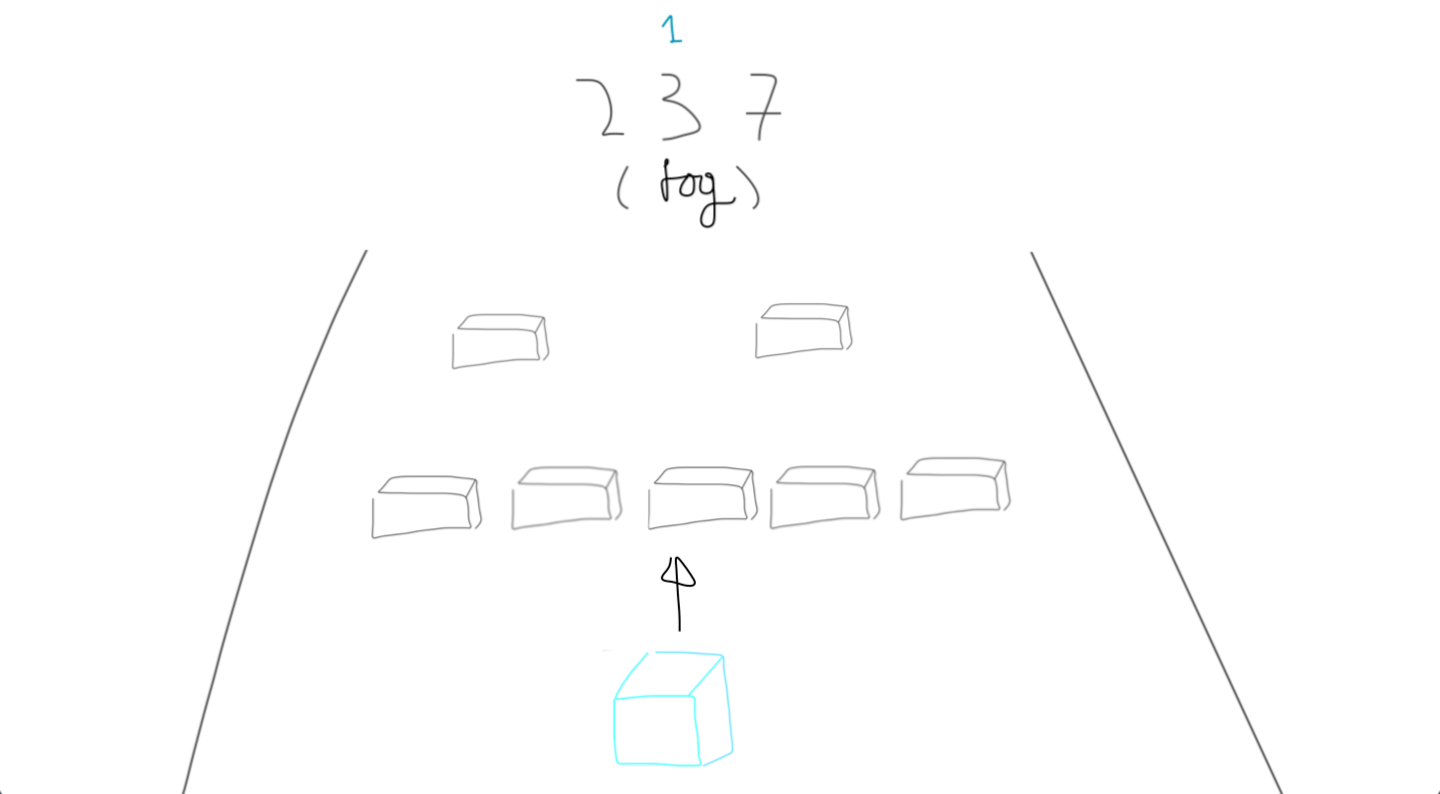 1
2 3 7
(fog)